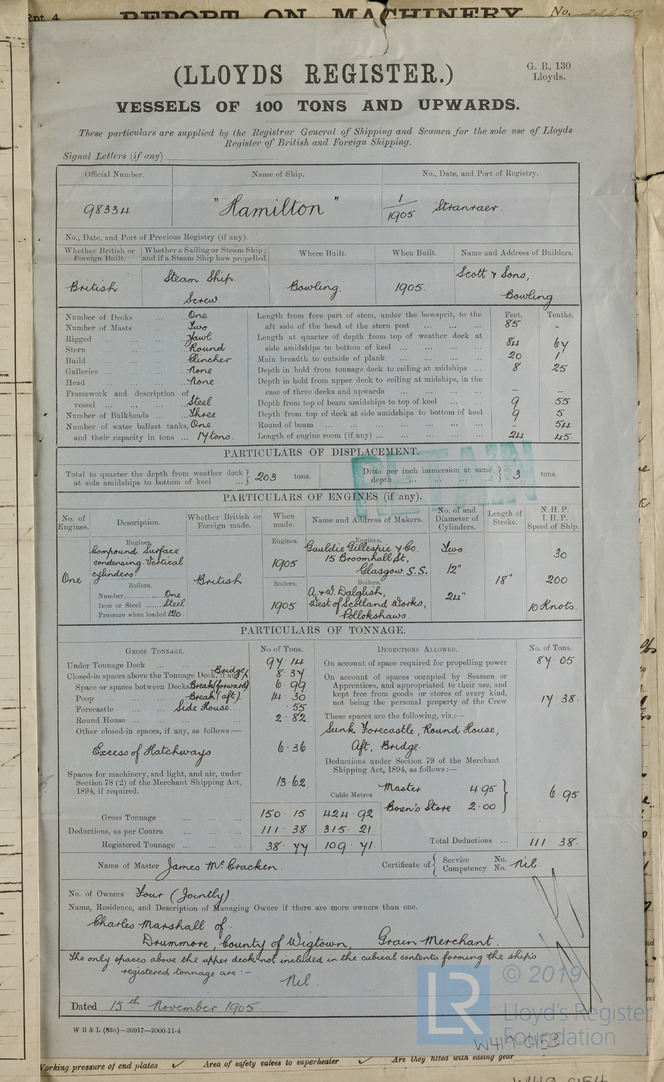 REPORT ON MACHINERY
No.
(LLOYDS REGISTER.)
G. R. 130
Lloyds.
VESSELS OF 100 TONS AND UPWARDS.
These particulars are supplied by the Registrar General of Shipping and Seamen for the sole use of Lloyds
Register of British and Foreign Shipping.
Signal Letters (if any)
Official Number. Name of Ship. No., Date, and Port of Registry.
98334 "Hamilton" 1/1905 Stranraer
No., Date, and Port of Previous Registry (if any).
Whether British or Foreign Built. Whether a Sailing or Steam Ship; and if a Steam Ship how propelled. Where Built. When Built. Name and Address of Builders.
British Steam Ship Screw Bowling 1905. Scott & Sons, Bowling
Feet. Tenths.
Number of Decks ... One
Number of Masts ... Two
Rigged ... Yawl
Stern ... Round
Build ... Clincher
Galleries ... None
Head ... None
Framework and description of
vessel ... Steel
Number of Bulkheads ... Three
Number of water ballast tanks, One
and their capacity in tons ... 17 tons.
Length from fore part of stem, under the bowsprit, to the
aft side of the head of the stern post ... 85 -
Length at quarter of depth from top of weather deck at
side amidships to bottom of keel ... 84 67
Main breadth to outside of plank ... 20 1
Depth in hold from tonnage deck to ceiling at midships ... 8 25
Depth in hold from upper deck to ceiling at midships, in the
case of three decks and upwards ... - -
Depth from top of beam amidships to top of keel ... 9 55
Depth from top of deck at side amidships to bottom of keel 9 5
Round of beam ... - 54
Length of engine room (if any) ... 24 45
PARTICULARS OF DISPLACEMENT.
Total to quarter the depth from weather deck at side amidships to bottom of keel } 203 tons. Ditto per inch immersion at same depth } 3 tons.
RETAIN
PARTICULARS OF ENGINES (if any).
No. of Engines. Description. Whether British or Foreign made. When made. Name and Address of Makers. No. of and Diameter of Cylinders. Length of Stroke. N.H.P. I.H.P. Speed of Ship.
One
Engines.
Compound Surface
condensing Vertical
cylinders
Boilers.
Number One
Iron or Steel Steel
Pressure when loaded 120
British
Engines.
1905
Boilers.
1905
Engines.
Gauldie Gillespie & Co.
15 Broomhall St,
Glasgow S.S.
Boilers.
A. & W. Dalglish,
West of Scotland Works,
Pollokshaws
Two
12"
24"
18"
30
200
10 Knots.
PARTICULARS OF TONNAGE.
GROSS TONNAGE. No of Tons. DEDUCTIONS ALLOWED. No. of Tons.
Under Tonnage Deck ... 97.14
Closed-in spaces above the Tonnage Deck, if any Bridge 8.37
Space or spaces between Decks Break (forward) 6.99
Poop Break (aft) 14.30
Forecastle Side House .55
Round House ... 2.82
Other closed-in spaces, if any, as follows:—
Excess of Hatchways 6.36
Spaces for machinery, and light, and air, under
Section 78 (2) of the Merchant Shipping Act,
1894, if required. 13.62
Cubic Metres
Gross Tonnage 150.15 424.92
Deductions, as per Contra 111.38 315.21
Registered Tonnage 38.77 109.71
On account of space required for propelling power 87.05
On account of spaces occupied by Seamen or
Apprentices, and appropriated to their use, and
kept free from goods or stores of every kind,
not being the personal property of the Crew 17.38.
These spaces are the following, viz:—
Sunk Forecastle, Round House,
Aft, Bridge.
Deductions under Section 79 of the Merchant
Shipping Act, 1894, as follows:—
Master 4.95
Bosn's Store 2.00
6.95
Total Deductions ... 111.38.
Name of Master James McCracken.
Certificate of { Service No. Competency No. Nil.
No. of Owners Four (Jointly)
Name, Residence, and Description of Managing Owner if there are more owners than one.
Charles Marshall of
Drummore, County of Wigtown, Grain Merchant.
The only spaces above the upper deck not included in the cubical contents forming the ship's
registered tonnage are:-
Nil.
Dated 15th November 1905.
W B & L (530)—20917—2000-11-4
LR
© 2019
Lloyd's Register
Foundation
W419-0153
Working pressure of end plates Area of safety valves to superheater Are they fitted with easing gear
W419-0154